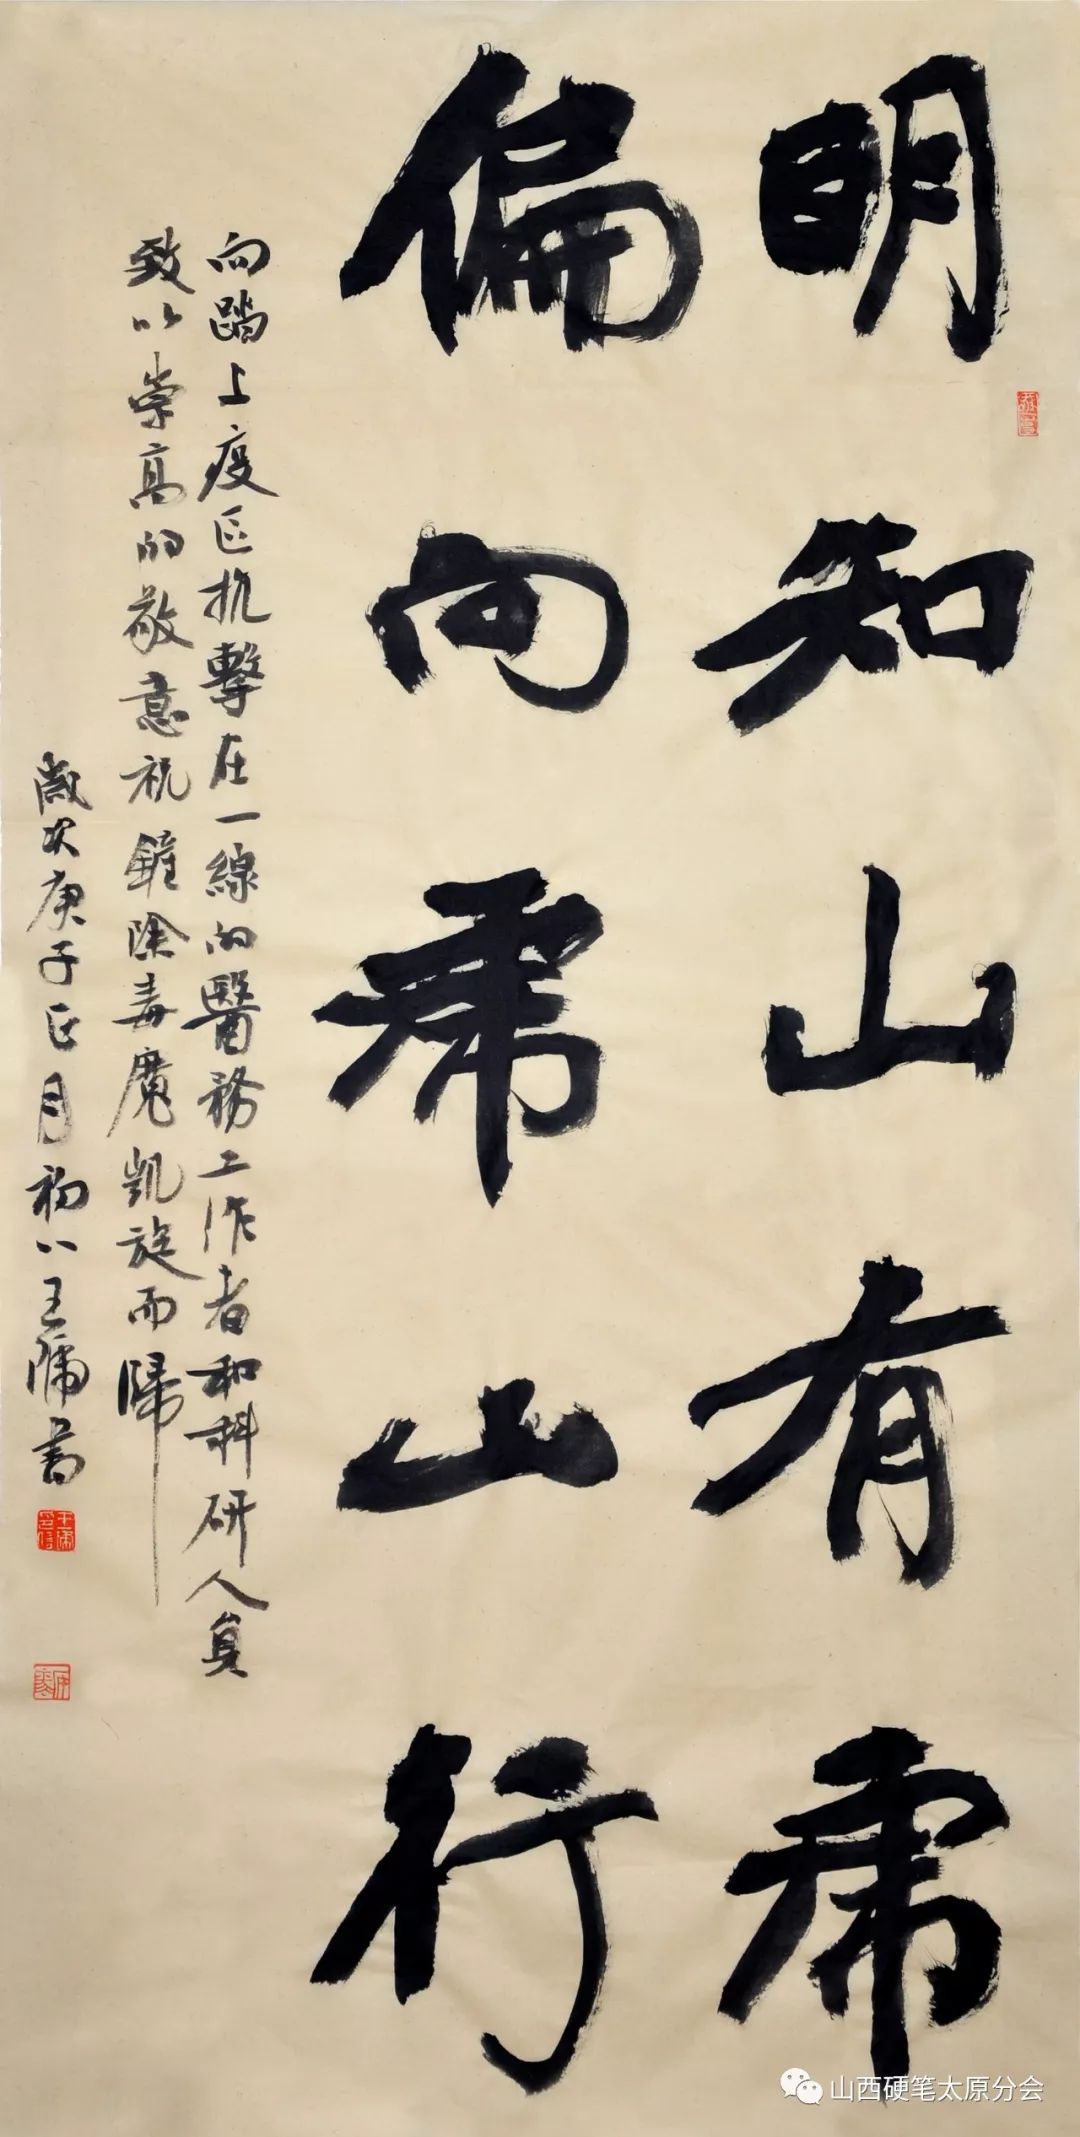 明知山有虎
偏向虎山行
向踏上疫区抗擊在一線的醫務工作者和科研人員
致以崇高的敬意祝鏟除毒魔凯旋而歸
歲次庚子正月初八王庸書
山西硬笔太原分会